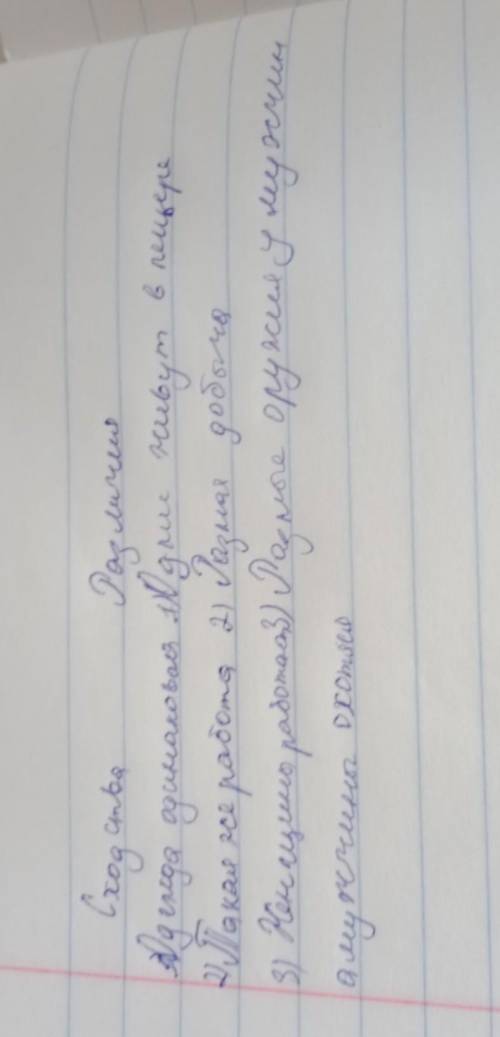 Сходства Различия
1) Адежда одинаковая 1) Адни живут в пещере
2) Такая же работа 2) Разная добыча
3) Женщины работают 3) Разные оружия у мужчин
а мужчины охотятся